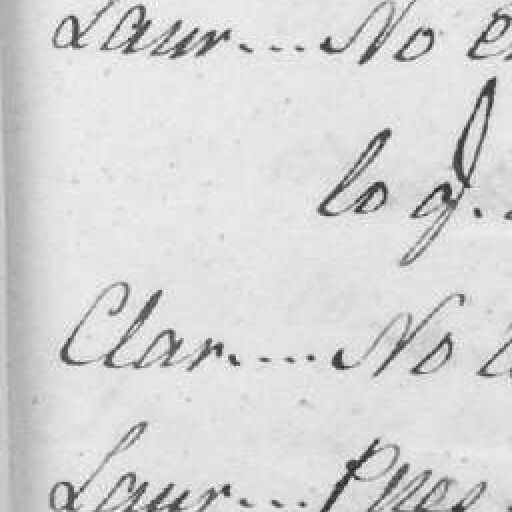 Laur.... No
lo q.
Clar..... No
Laur.... Pues